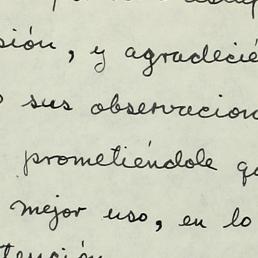 sión, y agradecié
sus observacion
prometiéndole q
mejor uso, en lo
tención